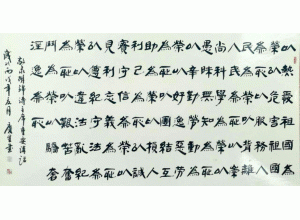 以熱愛祖國為
榮以危害祖國
為恥以服務人
民為榮以背離
人民為恥以崇
尚科學為榮以
愚昧無知為恥
以辛勤勞動為
榮以好逸惡勞
為恥以團結互
助為榮以損人
利己為恥以誠
實守信為榮以
見利忘義為恥
以遵紀守法為
榮以違法亂紀
為恥以艱苦奮
鬥為榮以驕奢
淫逸為恥
敬录胡錦濤主席重要講話
丙戌年五月